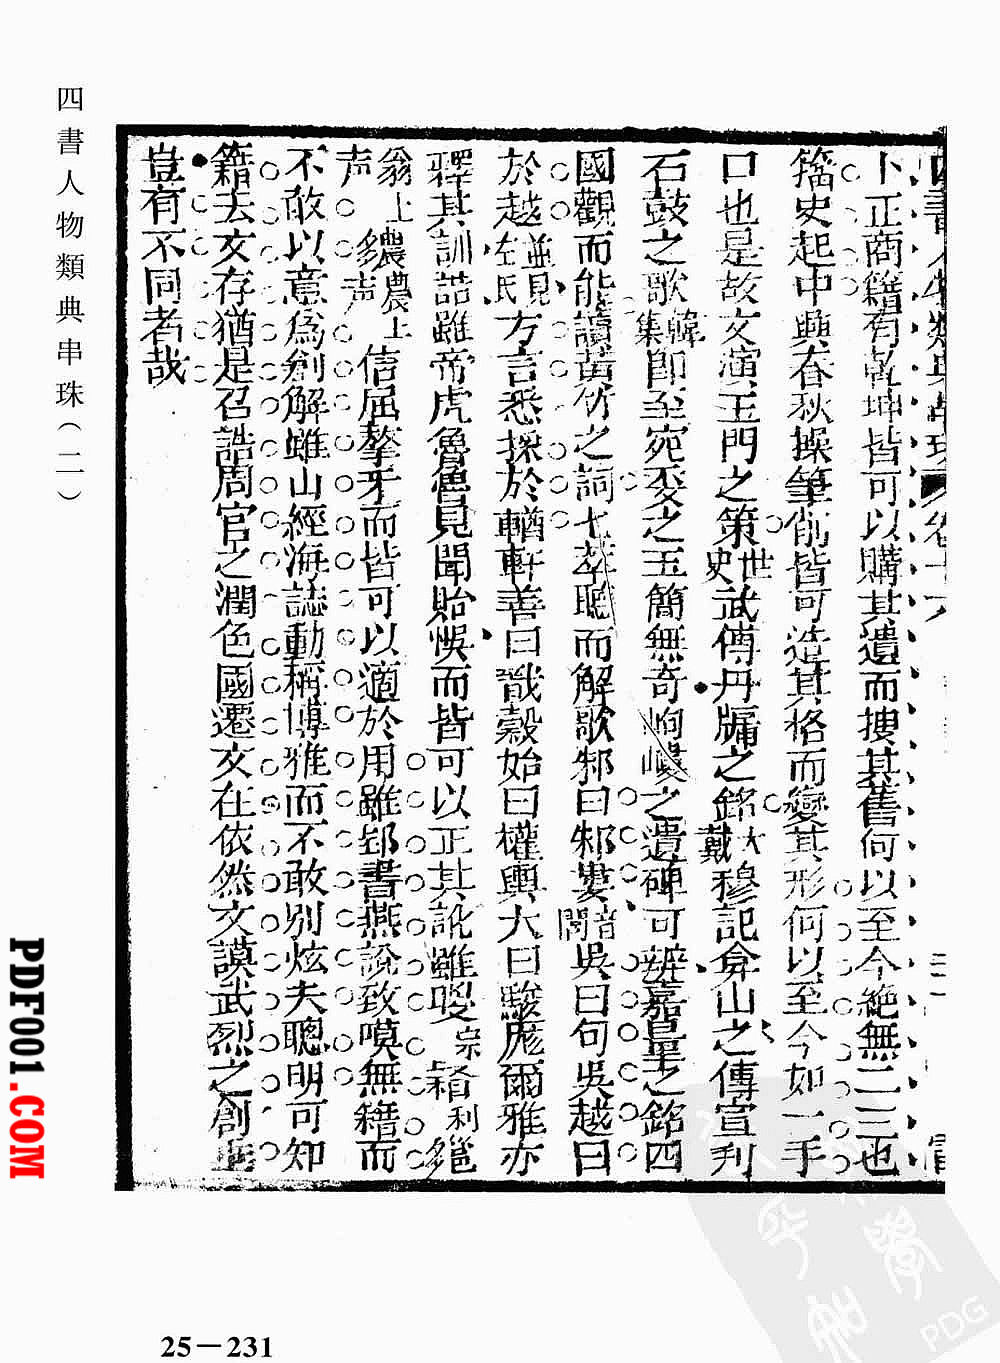 四書人物類典串珠（二）
四書人物類典串珠 卷十六
卜正商籍有乾坤皆可以購其遺而摟其舊何以至今絶無二三也
籀史起中興春秋操筆削皆可造其格而變其形何以至今如一手
口也是故文演玉門之策世史武傳丹牖之銘大戴穆記弇山之傳宣刋
石鼓之歌韓集卽至宛委之玉簡無奇岣嶁之遺碑可辨嘉量之銘四
國觀而能讀黃竹之詞七萃聽而解歌邾曰邾婁音閭吳曰句吳越曰
於越並見左氏方言悉採於輶軒善曰戩穀始曰權輿大曰駿厖爾雅亦
釋其訓詁雖帝虎魯魚見聞貽悞而皆可以正其訛雖
翁上声農農上声佶屈聱牙而皆可以適於用雖郢書燕說致嘆無籍而
不敢以意為創解雖山經海誌動稱博雅而不敢別炫夫聰明可知
籍去文存猶是召誥周官之潤色國遷文在依然文謨武烈之創垂
豈有不同者哉
PDF001.COM
25－231
PDG